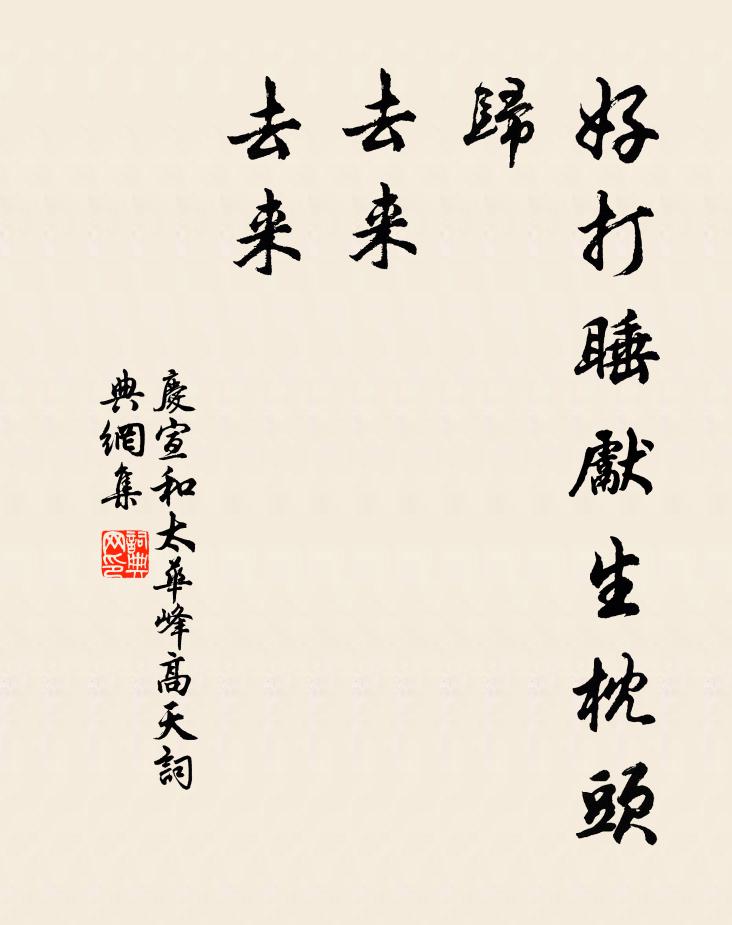 好打睡獻生枕頭
歸
去来
去来
慶宣和太華峰高天詞
典網集
詞典
网印